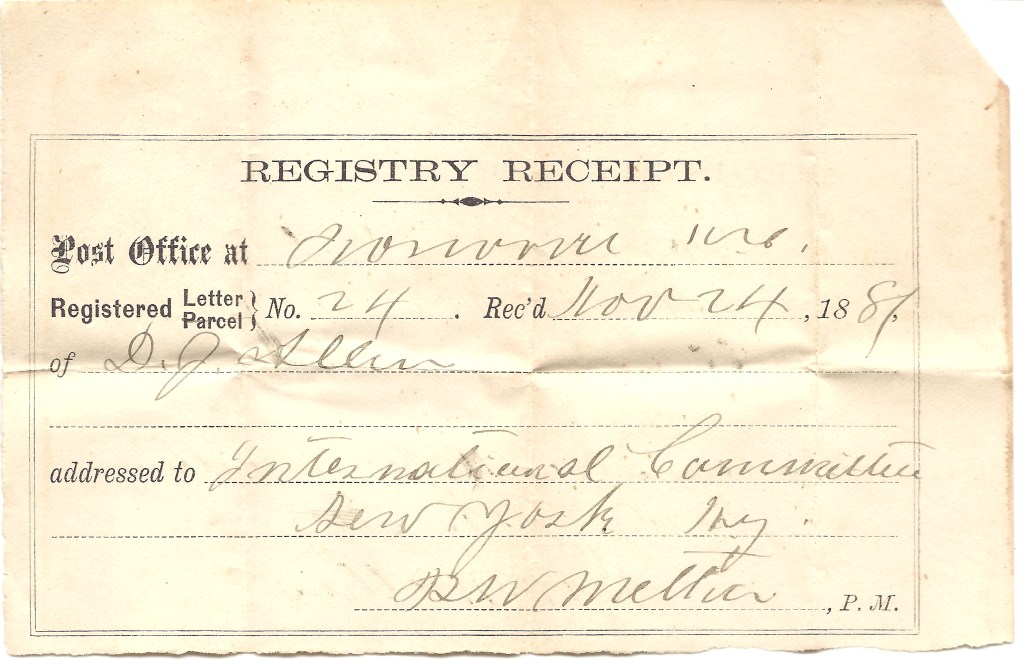 REGISTRY RECEIPT.
Post Office at Norwood Mo.
Registered Letter Parcel } No. 24. Rec'd Nov 24, 188
of D. J. Allen
addressed to International Committee
New York Ny.
P. M.